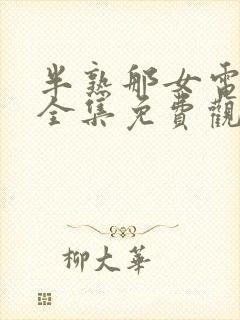 半熟郍女電
全集免費觀
柳大華